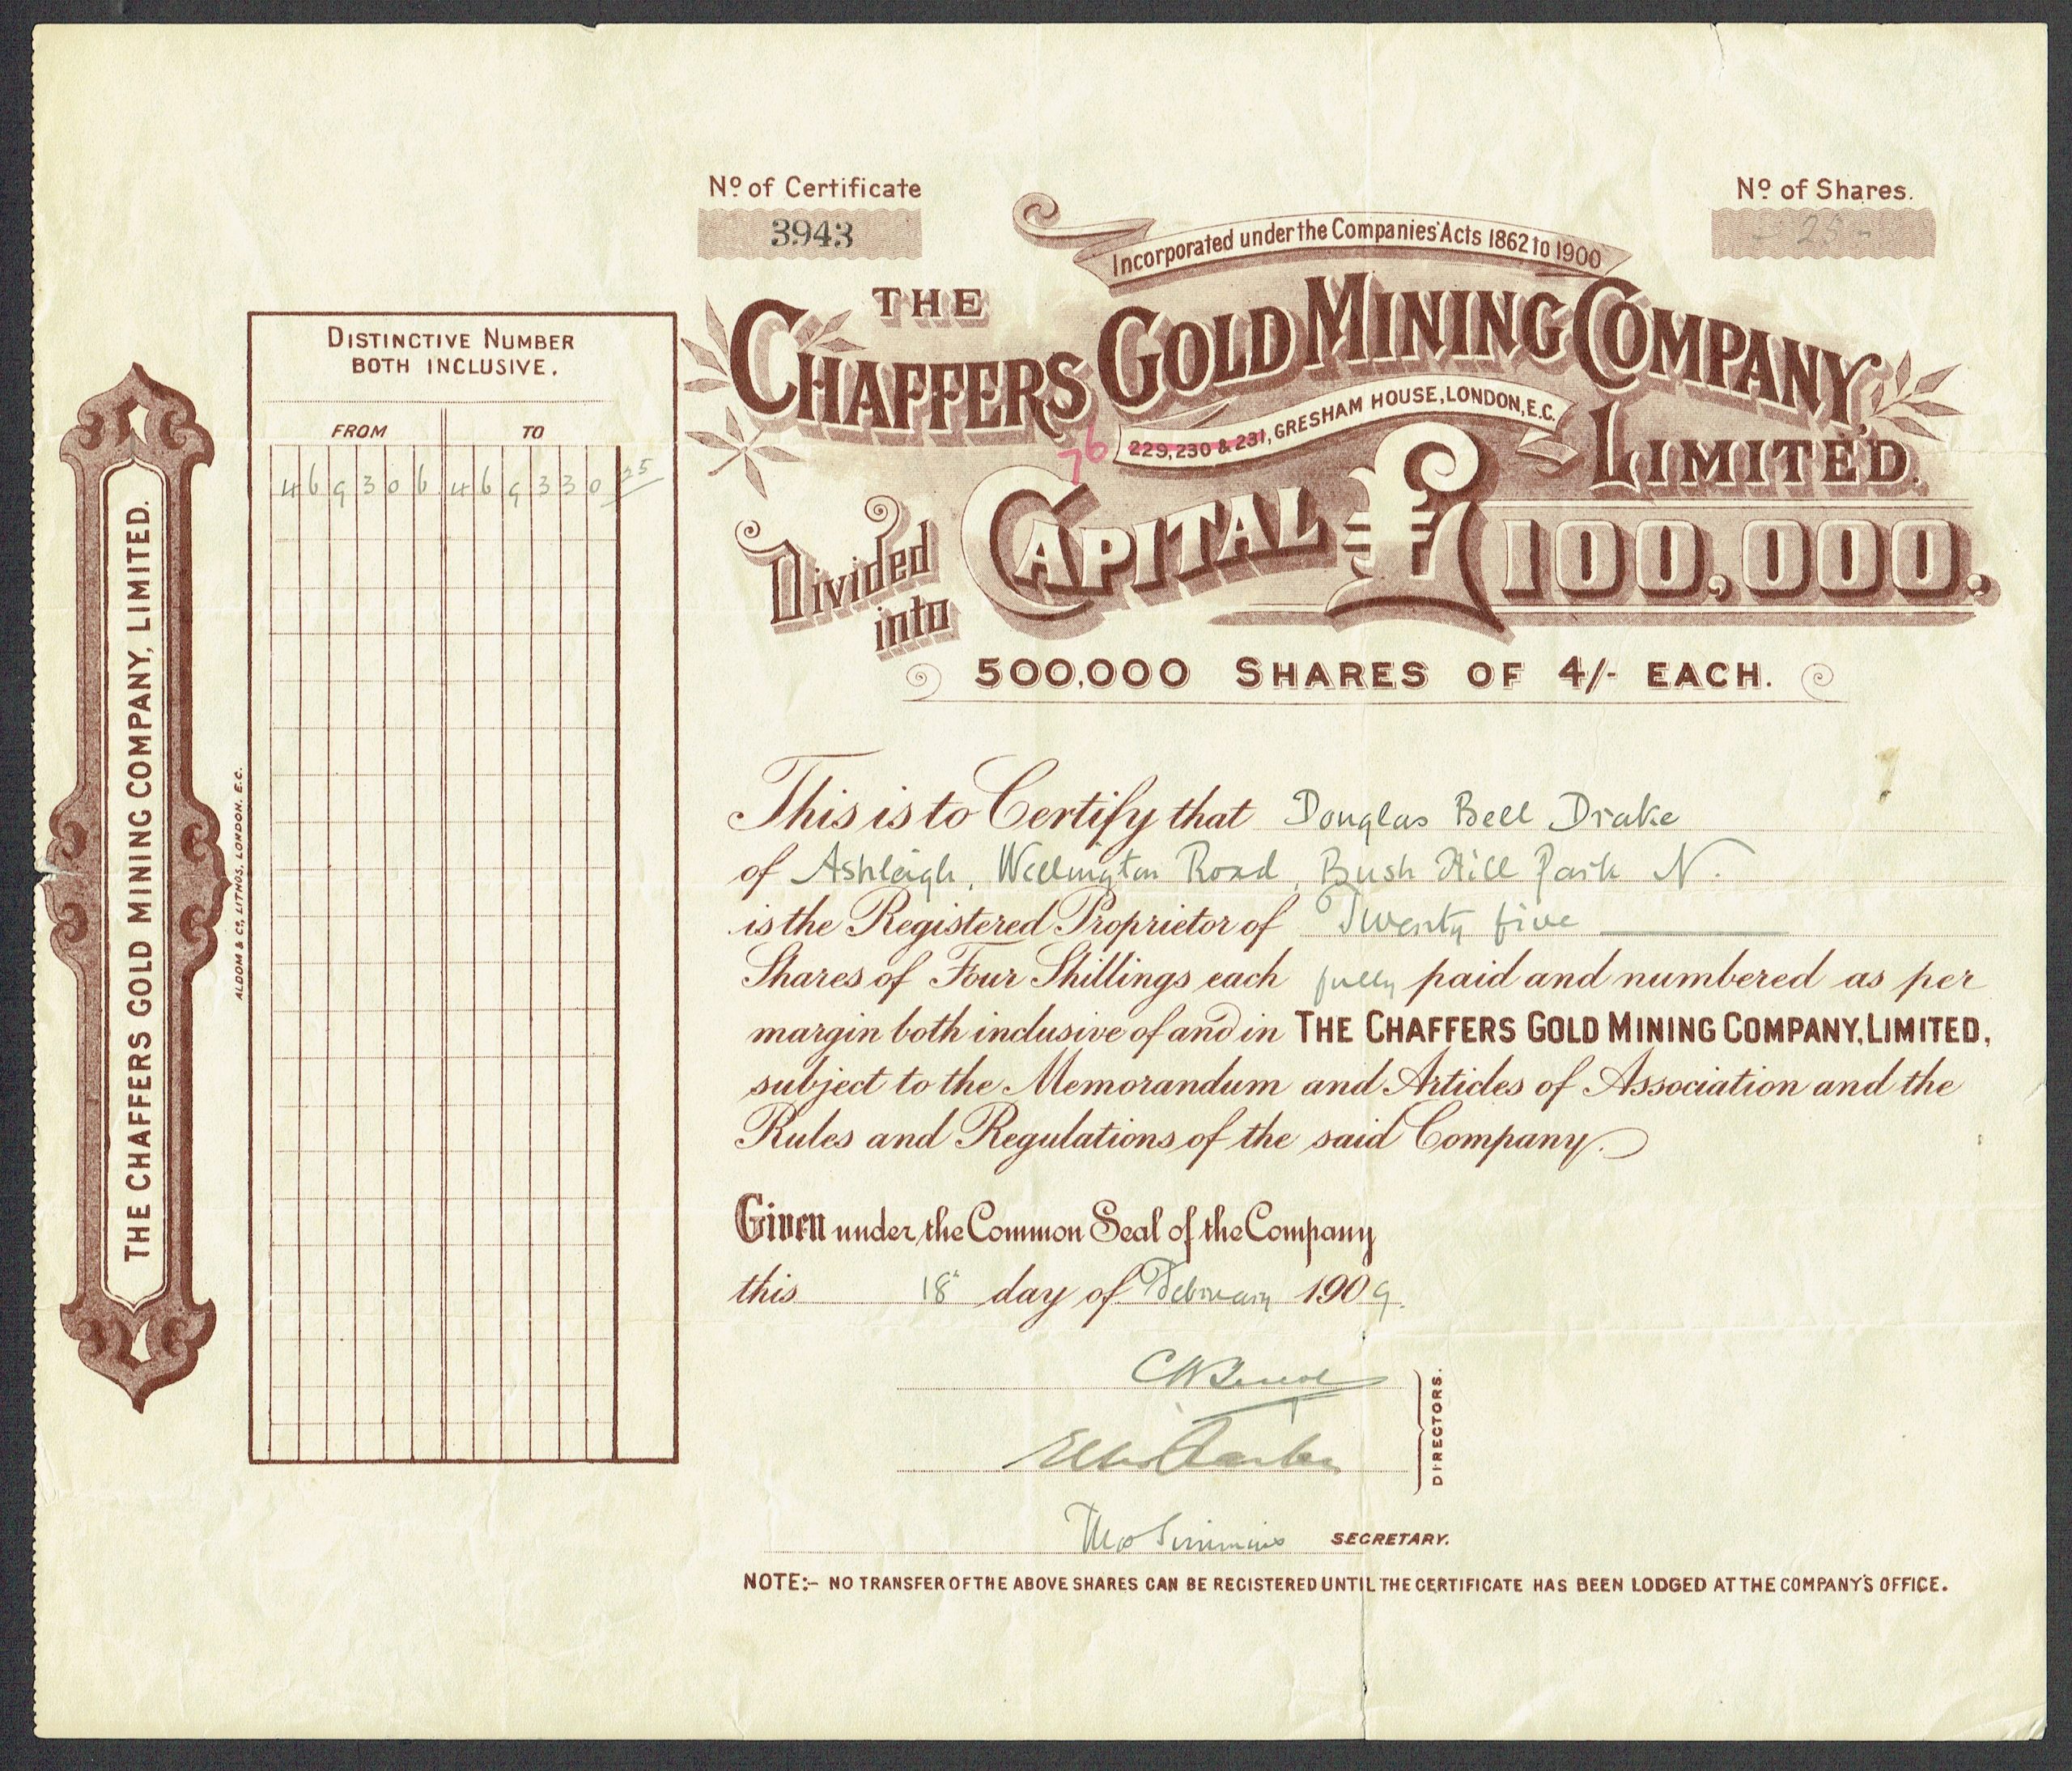 Nº of Certificate
3943
Nº of Shares.
- 25 -
Incorporated under the Companies' Acts 1862 to 1900
THE
CHAFFERS GOLD MINING COMPANY,
LIMITED.
76
229, 230 & 231, GRESHAM HOUSE, LONDON, E.C.
CAPITAL £100,000.
Divided
into
500,000 SHARES OF 4/- EACH.
THE CHAFFERS GOLD MINING COMPANY, LIMITED.
ALDOM & Cº, LITHOS, LONDON, E.C.
DISTINCTIVE NUMBER
BOTH INCLUSIVE.
FROM TO
469306 469330 25
This is to Certify that Douglas Bell Drake
of Ashleigh, Wellington Road, Bush Hill Park N.
is the Registered Proprietor of Twenty five
Shares of Four Shillings each fully paid and numbered as per
margin both inclusive of and in THE CHAFFERS GOLD MINING COMPANY, LIMITED,
subject to the Memorandum and Articles of Association and the
Rules and Regulations of the said Company.
Given under the Common Seal of the Company
this 18th day of February 1909.
DIRECTORS.
SECRETARY.
NOTE:- NO TRANSFER OF THE ABOVE SHARES CAN BE REGISTERED UNTIL THE CERTIFICATE HAS BEEN LODGED AT THE COMPANY'S OFFICE.